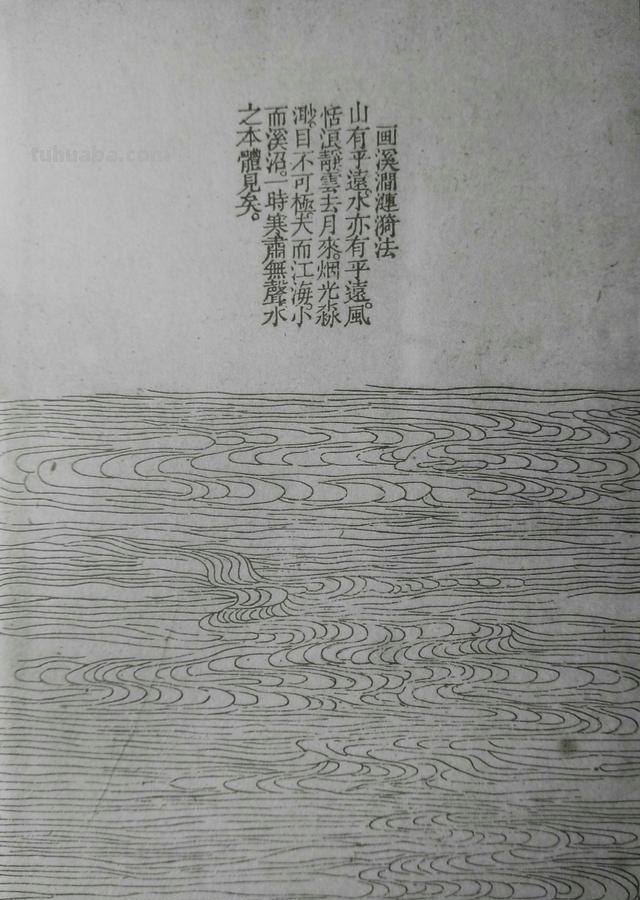 画溪澗漣漪法
山有平遠。水亦有平遠。風
恬浪靜。雲去月來。烟光淼
渺。目不可極。大而江海。小
而溪沼。一時寒肅無聲。水
之本體見矣。
tuhuaba.com